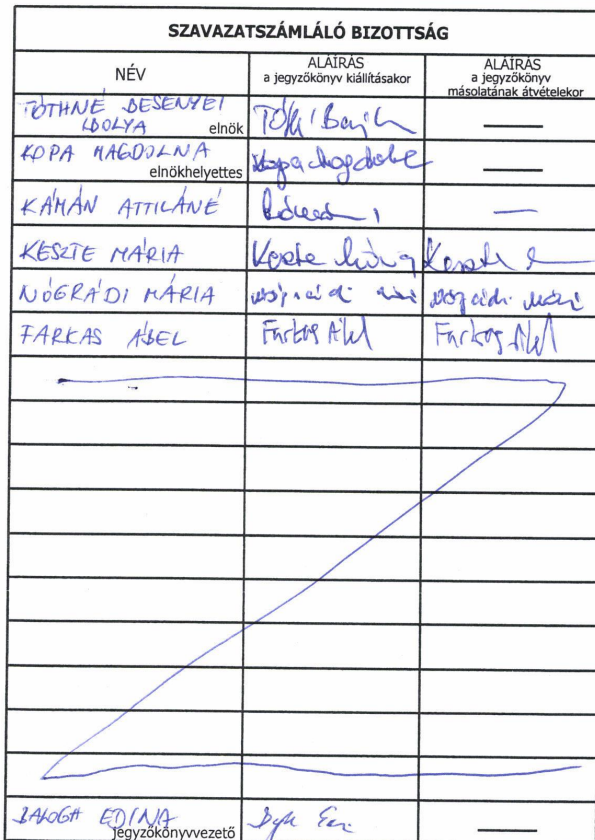 SZAVAZATSZÁMLÁLÓ BIZOTTSÁG
NÉV
ALÁÍRÁS
a jegyzőkönyv kiállításakor
ALÁÍRÁS
a jegyzőkönyv
másolatának átvételekor
TÓTHNÉ BESENYEI
IBOLYA elnök
KOPA MAGDOLNA
elnökhelyettes Kopa Magdolna
KÁMÁN ATTILÁNÉ
KESZTE MÁRIA Keszte Mária Keszte
NÓGRÁDI MÁRIA Nógrádi Nógrádi
FARKAS ÁBEL Farkas Ábel Farkas Ábel
BALOGH EDINA
jegyzőkönyvvezető